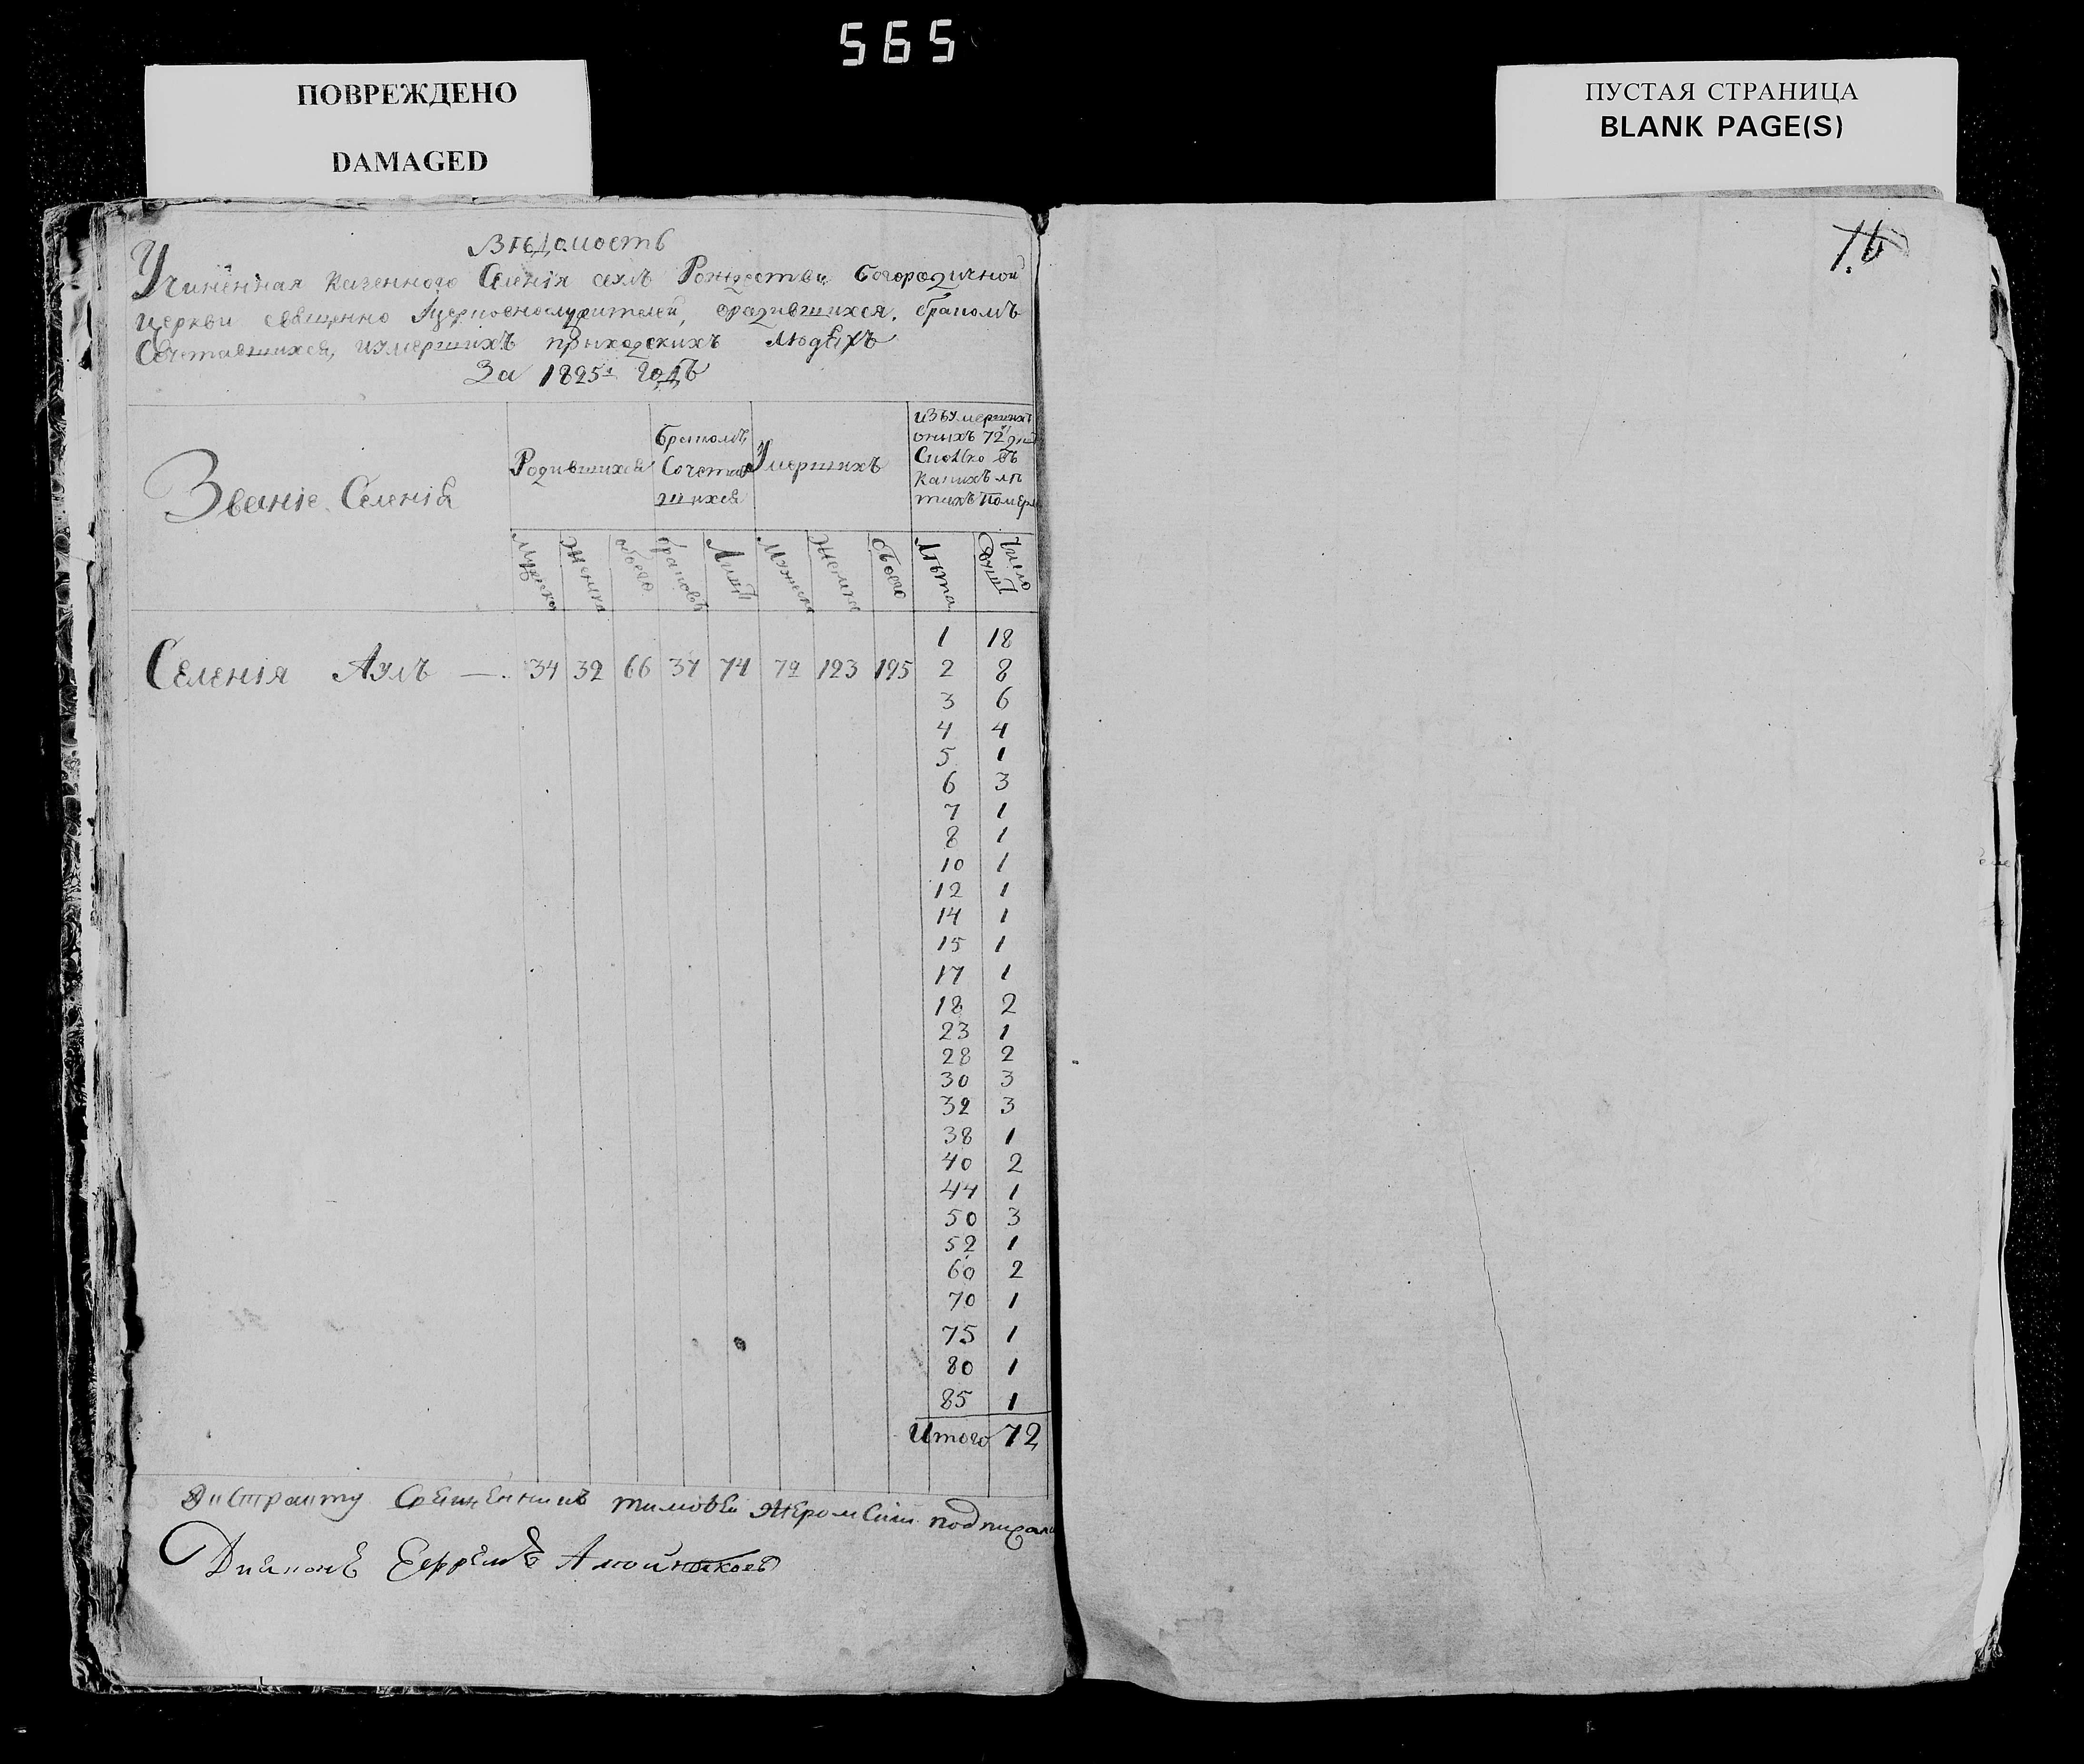 565
ПОВРЕЖДЕНО
DAMAGED
ПУСТАЯ СТРАНИЦА
BLANK PAGE(S)
Вѣдомость
Учиненная казенного Селенія Рождества богородичной
церкви священно ицерковнослужителей, орадившихся, бракомъ
Сочетавшихся, иумершихъ приходскихъ людехъ
За 1825й годъ
Званіе Селенія
Родившихся
бракомъ
Сочетав
шихся
Умершихъ
изъумершихъ
оныхъ 72
Сколко въ
какихъ лѣ
тахъ Помер
Мужеска
Женска
обоего
браковъ
Лицъ
Мужеска
Женска
обоего
Лѣта
Число
Душъ
Селенія Ауль — 34 32 66 37 74 72 123 195
1 18
2 8
3 6
4 4
5 1
6 3
7 1
8 1
10 1
12 1
14 1
15 1
17 1
18 2
23 1
28 2
30 3
32 3
38 1
40 2
44 1
50 3
52 1
60 2
70 1
75 1
80 1
85 1
Итого 72
Священникъ тимовей подписалъ
Диаконъ Ефремъ